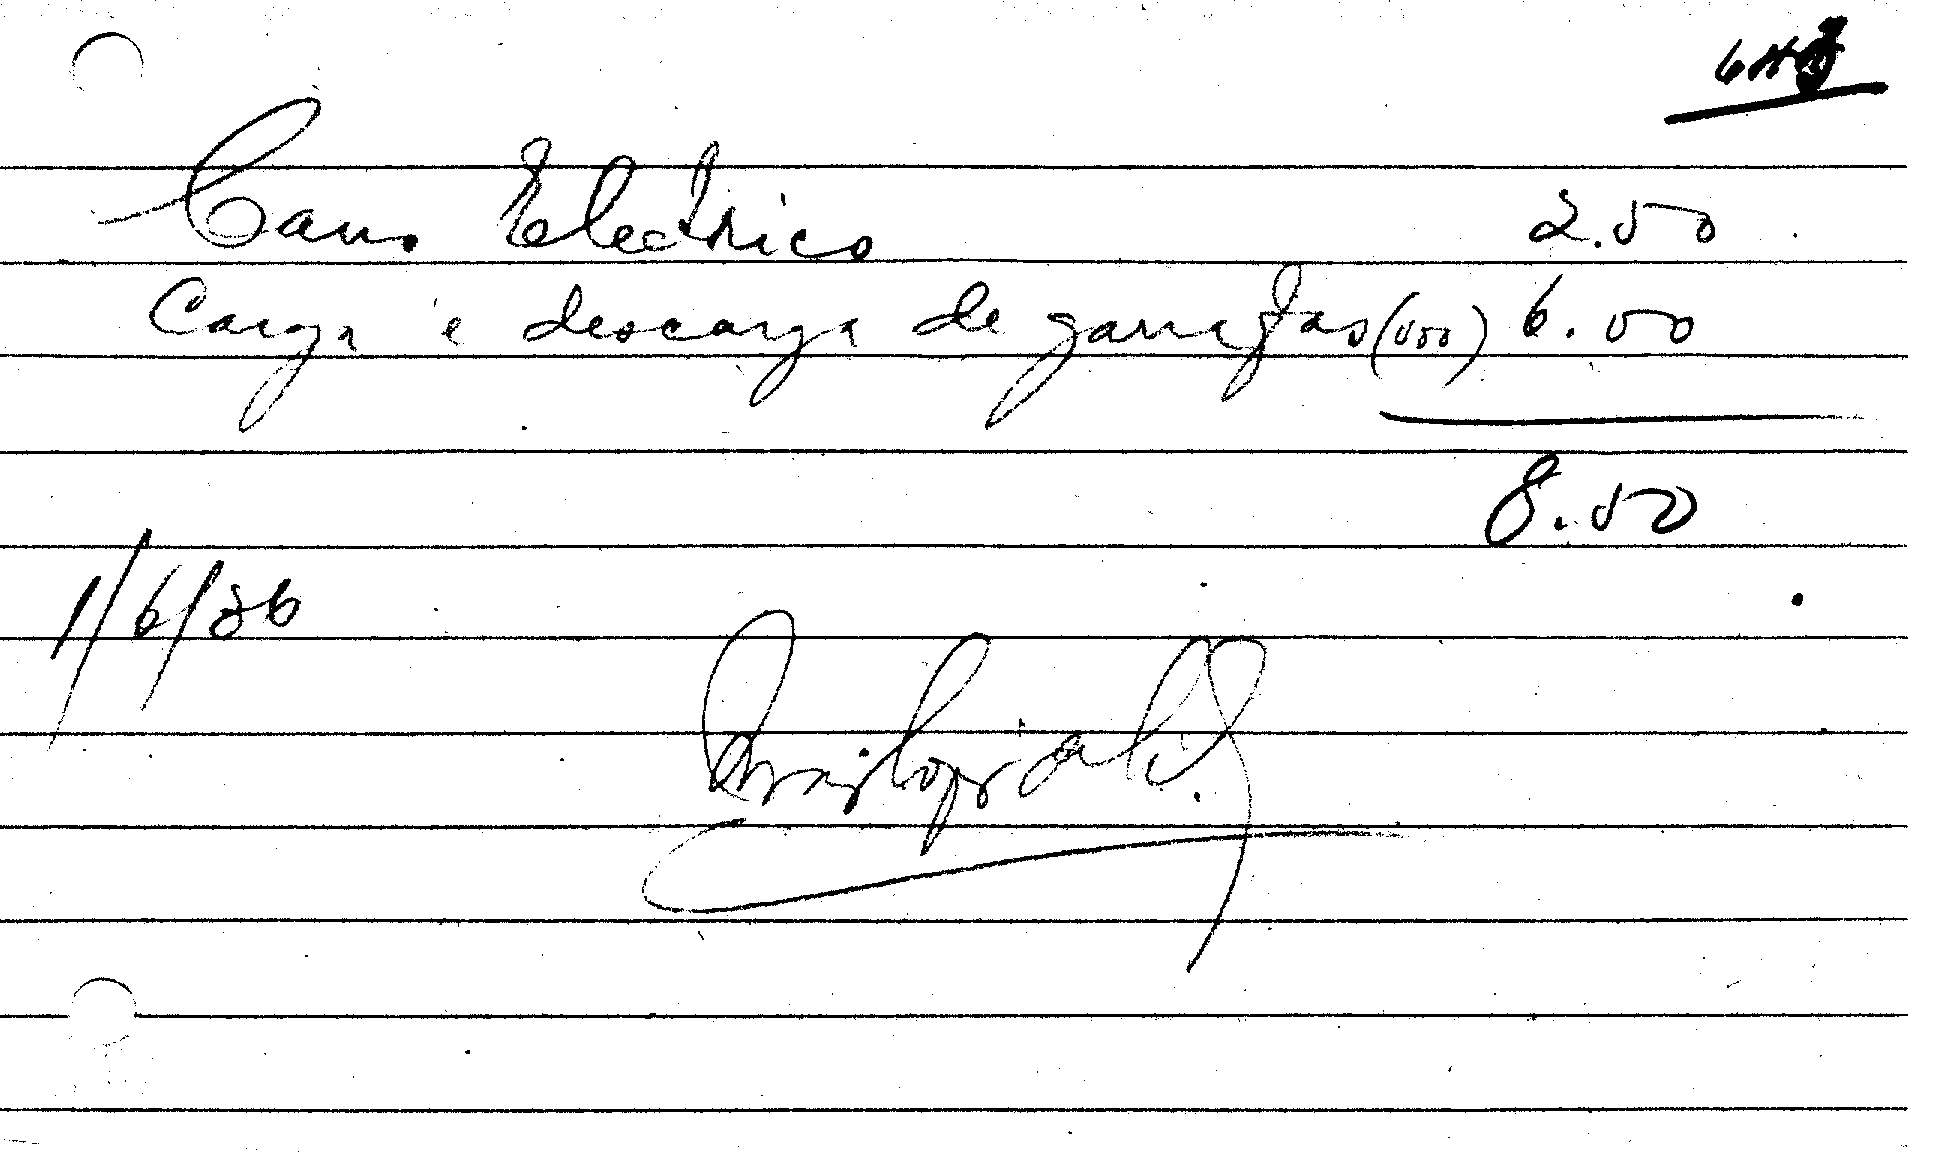 Carro Electrico 2.50
Carga e descarga de garrafas (500) 6.00
8.50
1/6/36